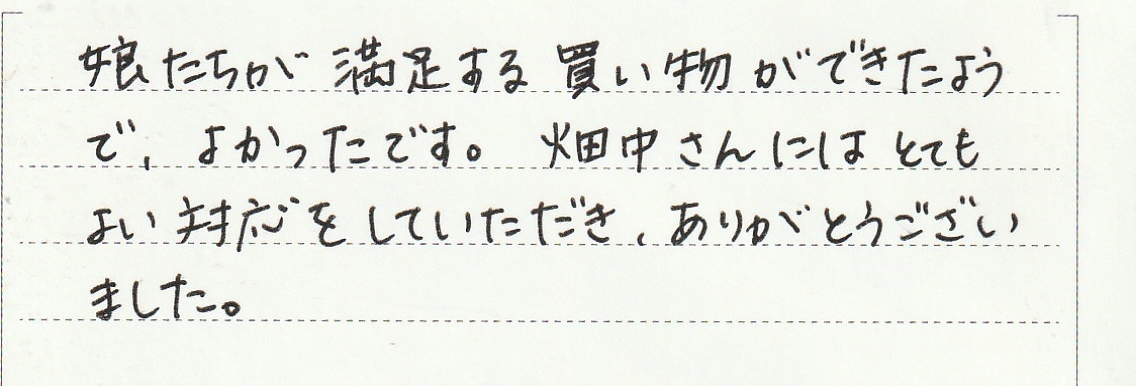 娘たちが満足する買い物ができたよう
で、よかったです。畑中さんにはとても
よい対応をしていただき、ありがとうござい
ました。